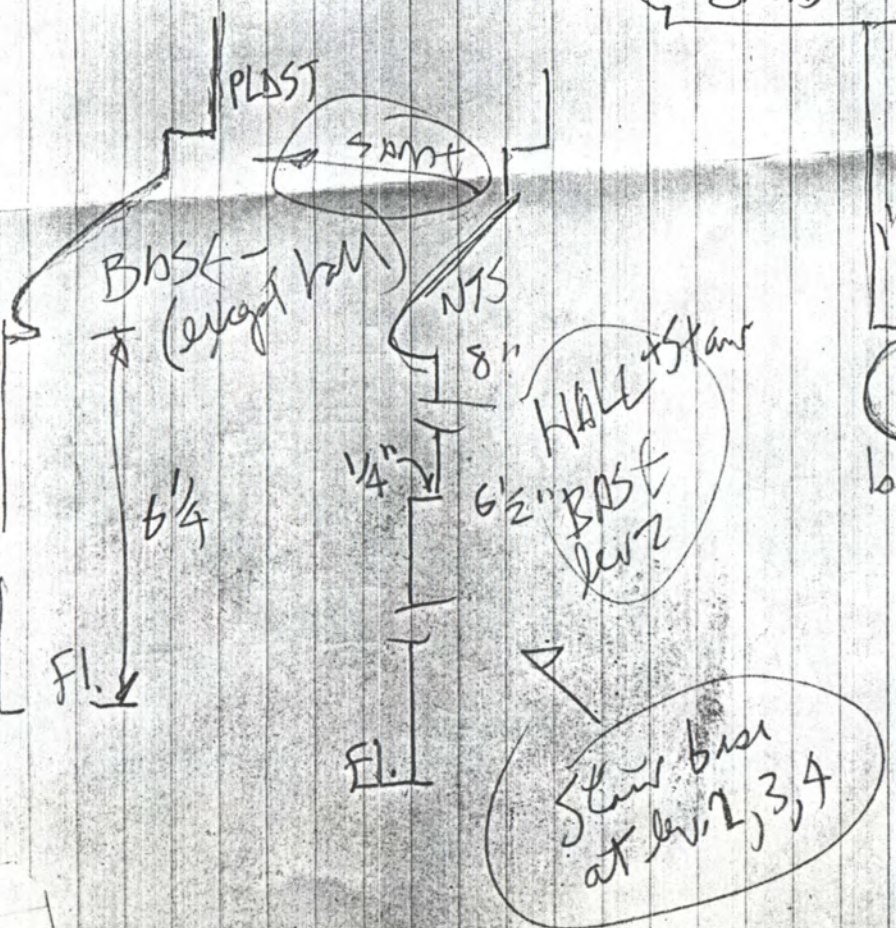 PLAST
SAME
BASE -
(except hall)
NTS
8"
HALL + Stair
1/4"
6 1/2" BASE
lev 2
6 1/4
Fl.
Fl.
Stair base
at lev. 2, 3, 4